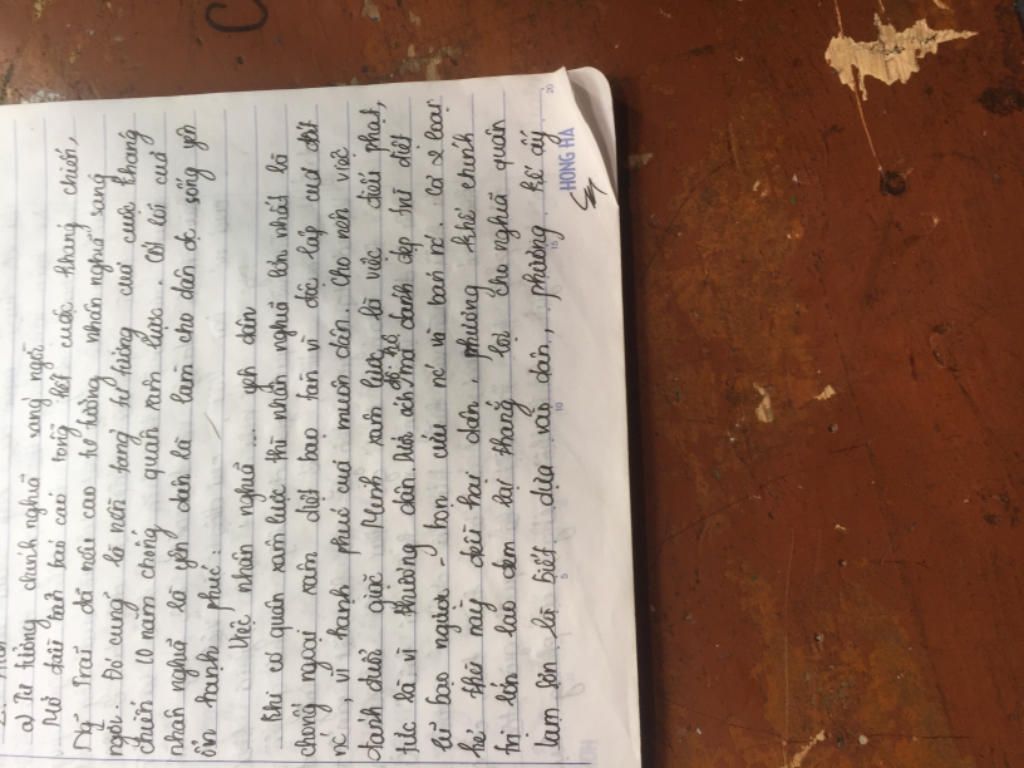 a) Tư tưởng chính nghĩa sáng ngời
Mở đầu bài cáo tổng kết cuộc kháng chiến,
Ng Trãi đã nêu cao tư tưởng nhân nghĩa sáng
ngời. Đó cũng là nền tảng tư tưởng của cuộc kháng
chiến 10 năm chống quân xâm lược. Cốt lõi của
nhân nghĩa là yên dân là làm cho dân đc sống yên
ổn hạnh phúc.
Việc nhân nghĩa ... yên dân
Khi có quân xâm lược thì nhân nghĩa lớn nhất là
chống ngoại xâm diệt bạo tàn vì độc lập của đất
nc, vì hạnh phúc của muôn dân. Cho nên việc
đánh đuổi giặc Minh xâm lược là việc điếu phạt,
tức là vì thương dân mà đánh dẹp trừ diệt
lũ bạo ngược - bọn cừu nc và bán nc. Là 2 loại
kẻ thù này đều hại dân, phương khế chính
trị lớn lao đem lại thắng lợi cho nghĩa quân
Lam Sơn là biết dựa vào dân, phương kế ấy
HONG HA
5
10
15
20